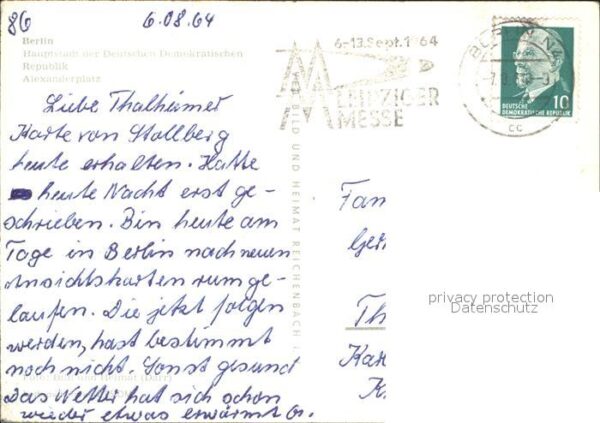 86 6.08.64
Berlin
Hauptstadt der Deutschen Demokratischen
Republik
Alexanderplatz
Liebe Thalheimer
Karte von Stollberg
heute erhalten. Hatte
heute Nacht erst ge-
schrieben. Bin heute am
Tage in Berlin nach neuen
Ansichtskarten rumge-
laufen. Die jetzt folgen
werden, hast bestimmt
noch nicht. Sonst gesund
Das Wetter hat sich schon
wieder etwas erwärmt
BILD UND HEIMAT REICHENBACH I.
6-13.Sept.1964
MM
LEIPZIGER
MESSE
BERLIN
cc
DEUTSCHE
DEMOKRATISCHE REPUBLIK
10
Fam
Ger
Th
Kar
K
privacy protection
Datenschutz